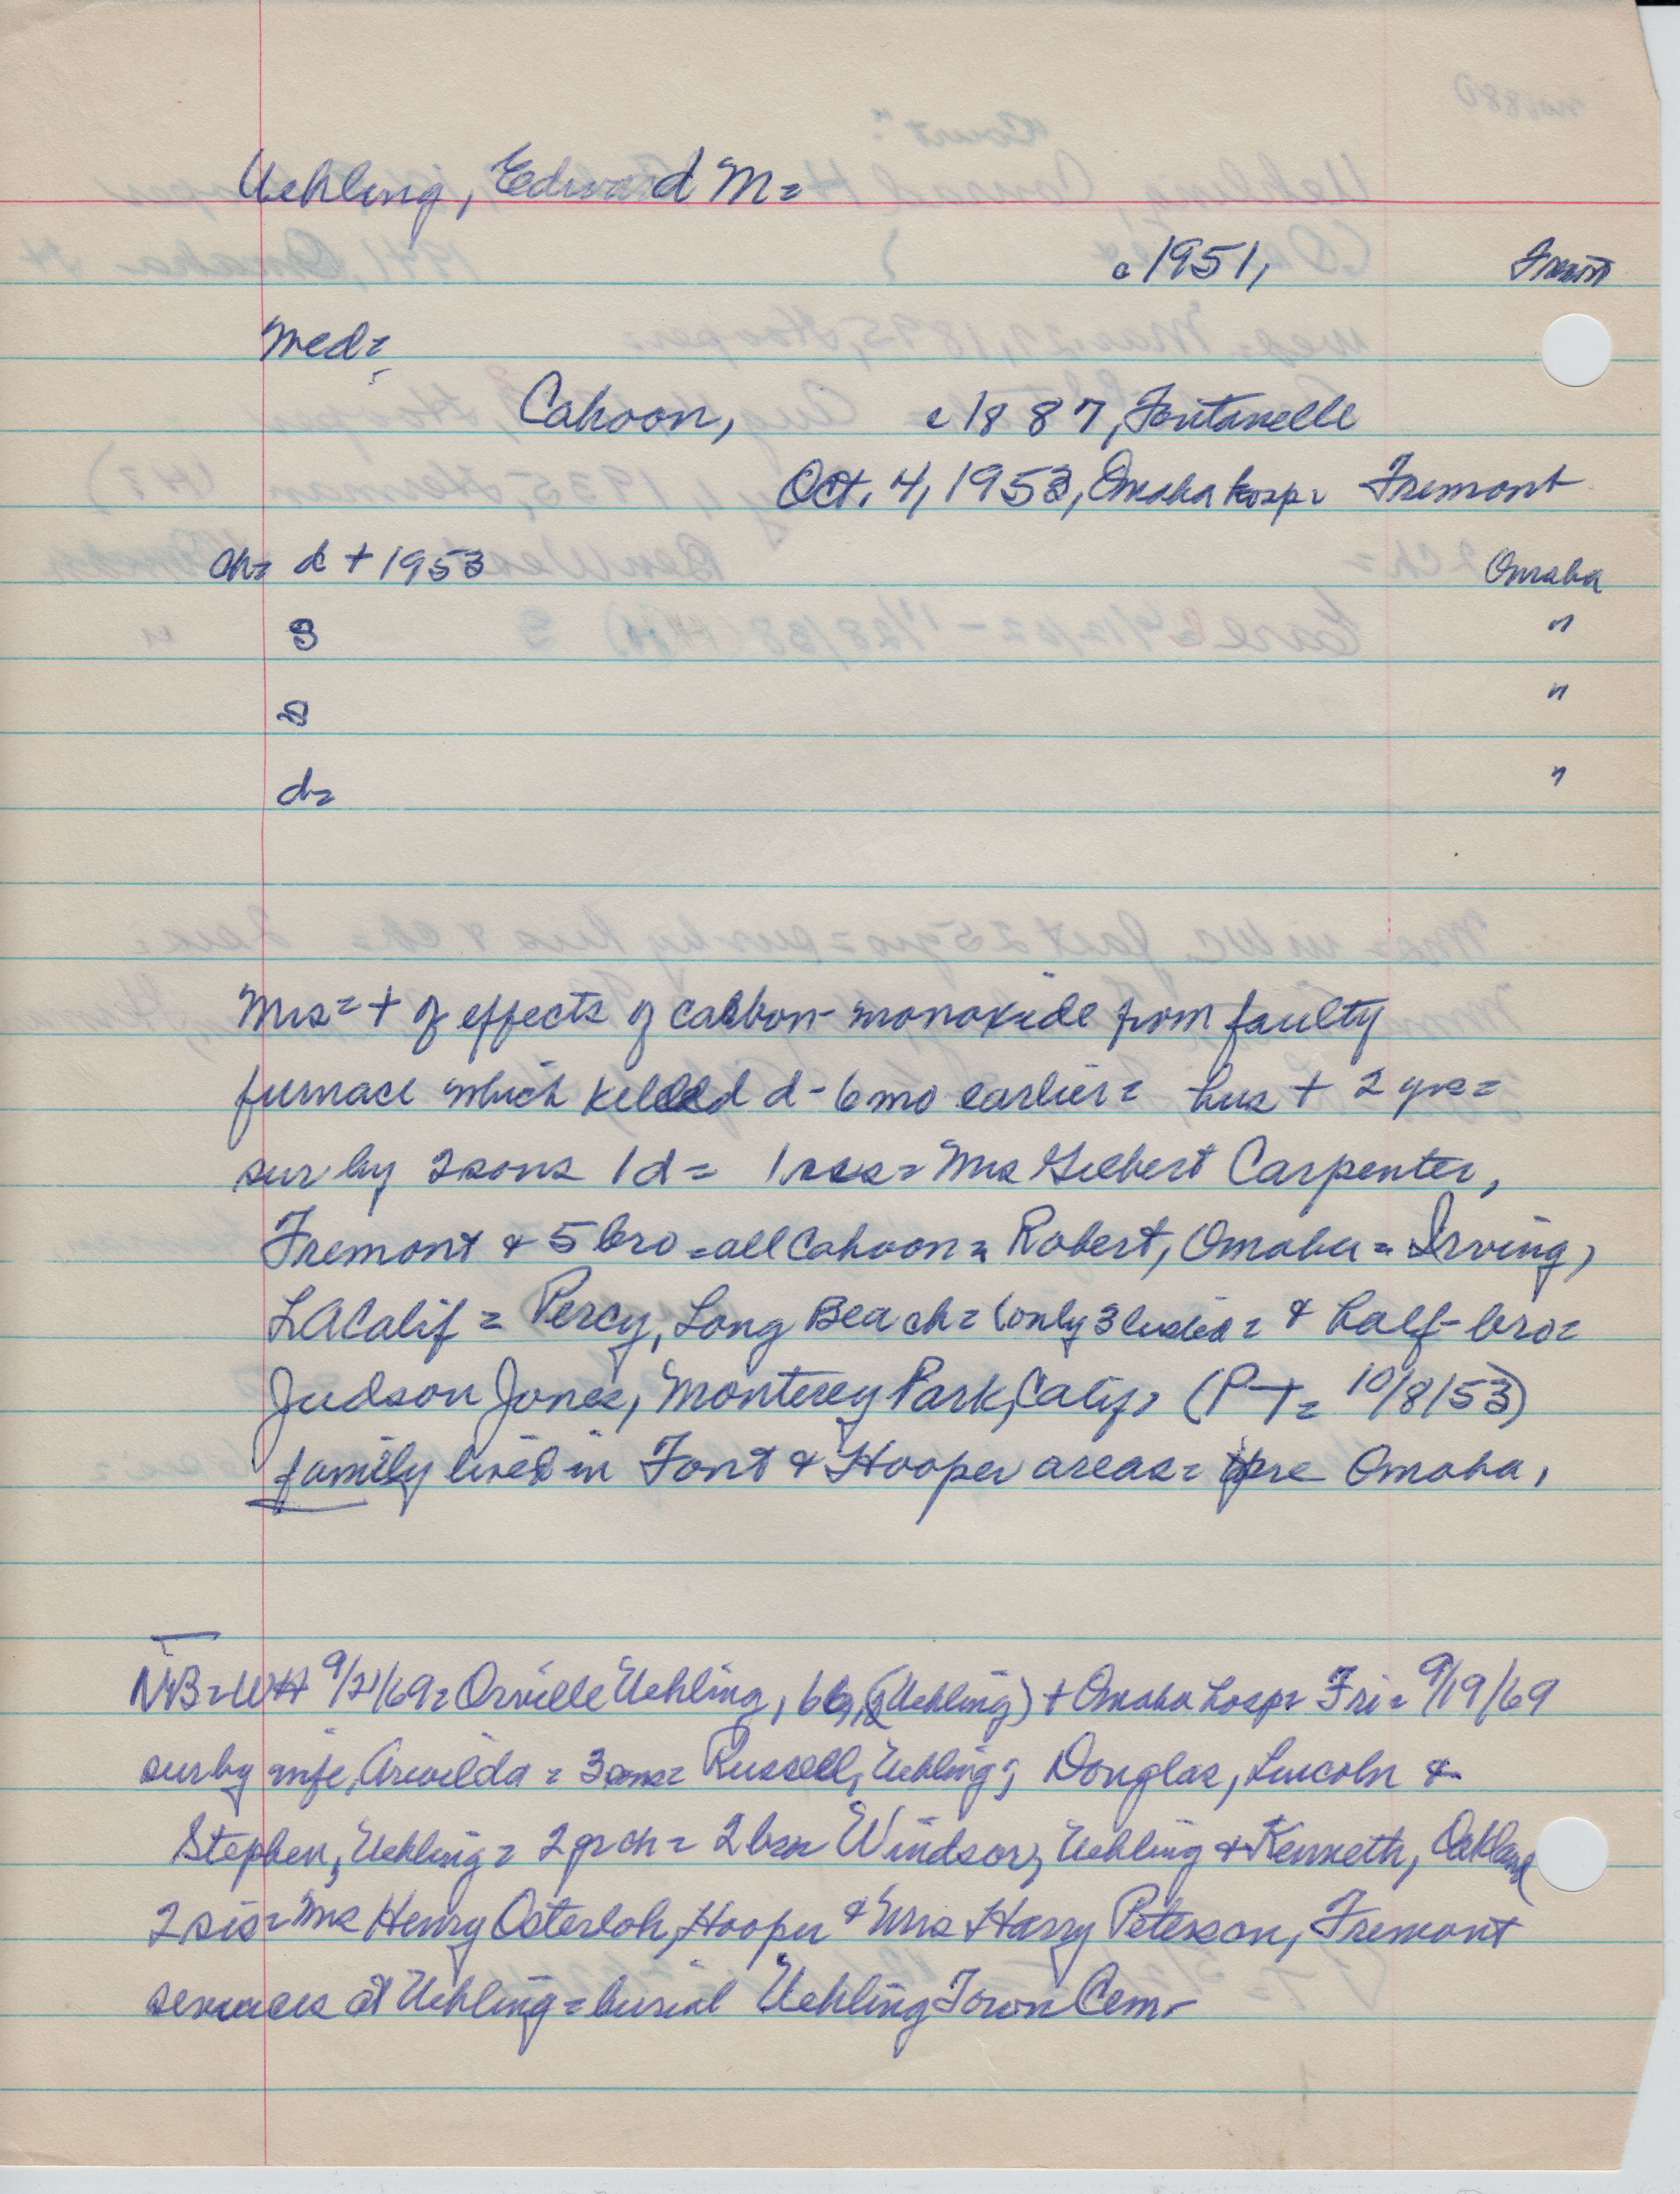 Uehling, Edward M=
c 1951, Fremont
Wed=
Cahoon, c 1887, Fontanelle
Oct. 4, 1953, Omaha hosp= Fremont
Ch= d + 1953 Omaha
S "
S "
d= "
Mrs= + of effects of carbon-monoxide from faulty
furnace which killed d - 6 mo earlier= hus + 2 yrs=
sur by 2 sons 1 d= 1 sis= Mrs Gilbert Carpenter,
Fremont & 5 bro =all Cahoon= Robert, Omaha= Irving,
LA Calif = Percy, Long Beach= (only 3 listed= & half-bro=
Judson Jones, Monterey Park, Calif, (P-T= 10/8/53)
family lived in Font & Hooper areas= pre Omaha,
NB=WH 9/21/69= Orville Uehling, 66, (Uehling) + Omaha hosp= Fri= 9/19/69
sur by wife, Arwilda = 3 sons= Russell, Uehling; Douglas, Lincoln &
Stephen, Uehling= 2 gr ch= 2 bro= Windsor, Uehling & Kenneth, Oakland
2 sis= Mrs Henry Osterloh, Hooper & Mrs Harry Peterson, Fremont
services at Uehling= burial Uehling Town Cem-